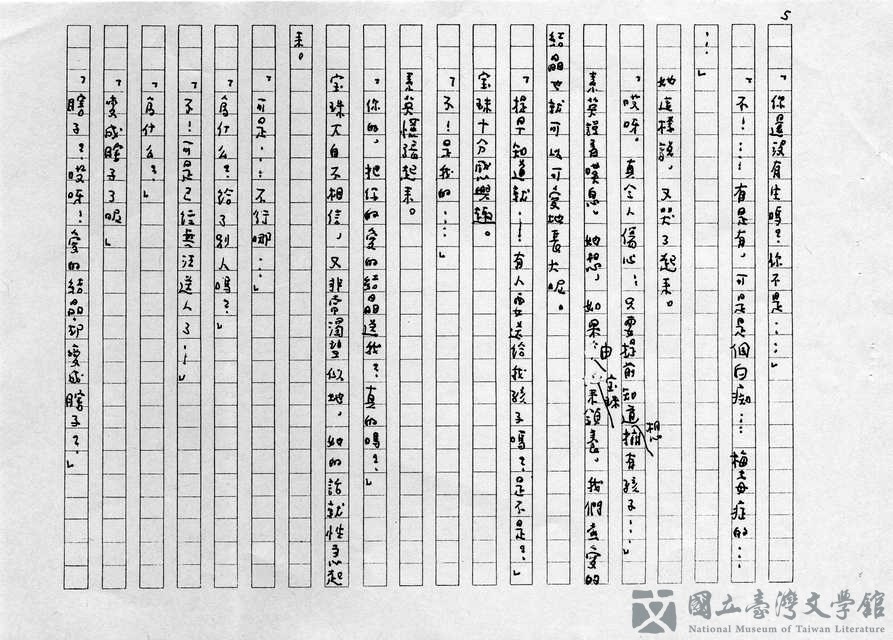 5
「你還沒有生嗎？你不是……」
「不！……有是有，可是是個白痴……梅毒症的……
……」
她這樣說，又哭了起來。
「哎呀。真令人傷心……只要提前知道想有孩子……」
素英獨自嘆息。她想，如果……由宝珠來領養，我們喜愛的
結晶也就可以可愛地長大呢。
「提早知道就……！有人要送給我孩子嗎？是不是？」
宝珠十分感興趣。
「不！是我的……」
素英慌張起來。
「你的，把你的愛的結晶送我？真的嗎？」
宝珠大自不相信，又非常渴望似地，她的話就性急起
來。
「可是……不行哪……」
「為什么？給了別人嗎？」
「不！可是已經無法送人了……」
「為什么？」
「变成瞎子了呢」
「瞎子？哎呀！愛的結晶却变成瞎子？」
國立臺灣文學館
National Museum of Taiwan Literature